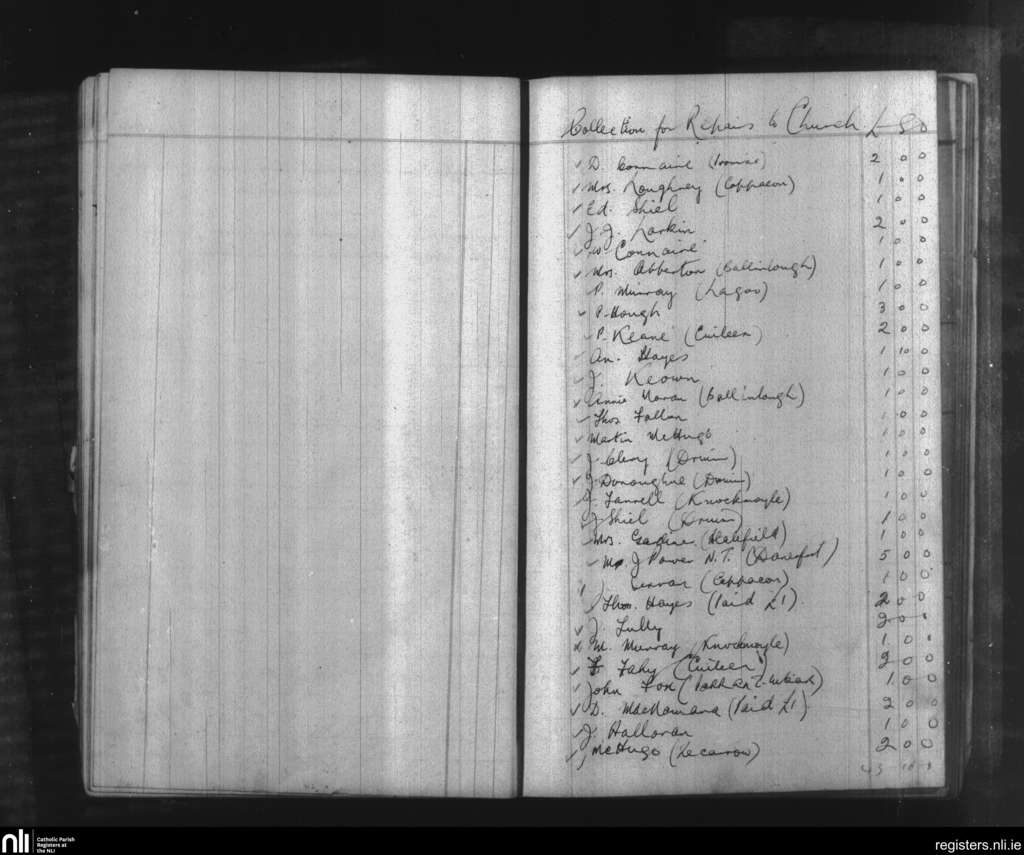 Collection for Repairs to Church £ S D
✓ D. Connaire 2 0 0
✓ Mrs. Loughney (Cappacon) 1 0 0
✓ Ed. Shiel 1 0 0
✓ J. J. Larkin 2 0 0
✓ W. Connaire 1 0 0
✓ Mrs. Abberton (Ballinlough) 1 0 0
P. Murray (Lagoo) 1 0 0
✓ P. Hough 3 0 0
✓ P. Keane (Cuileen) 2 0 0
✓ An. Hayes 1 10 0
✓ J. Keown 1 0 0
✓ Annie Moran (Ballinlough) 1 0 0
✓ Thos Fallon 1 0 0
✓ Martin McHugo 1 0 0
✓ J. Cleary (Drum) 1 0 0
✓ J. Donoughue (Drum) 1 0 0
✓ J. Farrell (Knockmoyle) 1 0 0
✓ J. Shiel (Drum) 1 0 0
✓ Mrs. Gardiner 1 0 0
✓ J Power N.T. 5 0 0
(Cappacon) 1 0 0
Thos. Hayes (Paid £1) 2 0 0
✓ J. Tully 2 0 0
M. Murray (Knockmoyle) 1 0 0
✓ Fahy (Cuileen) 2 0 0
✓ John Fox 1 0 0
✓ D. MacNamara (Paid £1) 2 0 0
✓ J. Halloran 1 0 0
✓ McHugo (Lecarrow) 2 0 0
nli
Catholic Parish
Registers at
the NLI
registers.nli.ie